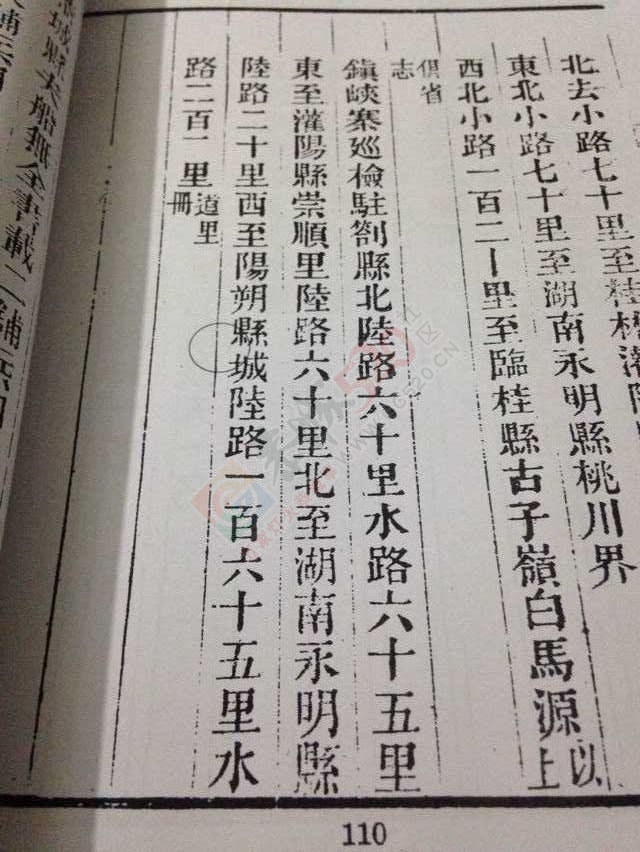 北去小路七十里至桂橋灌陽
東北小路七十里至湖南永明縣桃川界
西北小路一百二十里至臨桂縣古子嶺白馬源以上
俱省志
鎮峽寨巡檢駐劄縣北陸路六十里水路六十五里
東至灌陽縣崇順里陸路六十里北至湖南永明縣
陸路二十里西至陽朔縣城陸路一百六十五里水
路二百一里道里冊
110